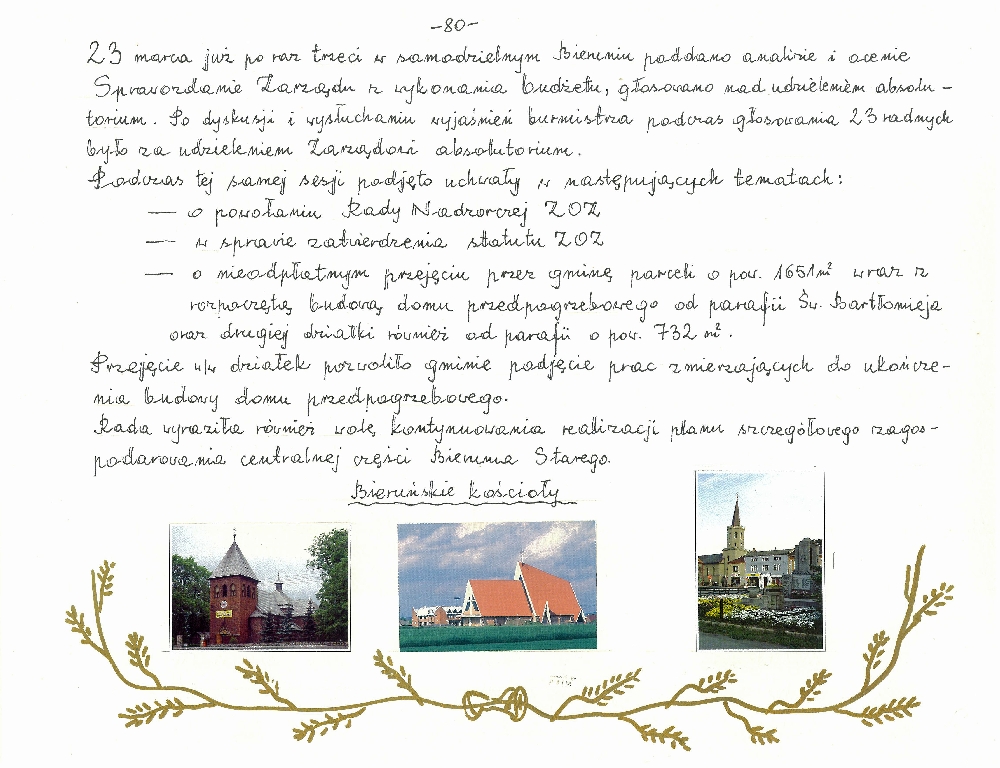 -80-
23 marca już po raz trzeci w samodzielnym Bieruniu poddano analizie i ocenie
Sprawozdanie Zarządu z wykonania budżetu, głosowano nad udzieleniem absolu-
torium. Po dyskusji i wysłuchaniu wyjaśnień burmistrza podczas głosowania 23 radnych
było za udzieleniem Zarządowi absolutorium.
Podczas tej samej sesji podjęto uchwały w następujących tematach:
— o powołaniu Rady Nadzorczej ZOZ
— w sprawie zatwierdzenia statutu ZOZ
— o nieodpłatnym przejęciu przez gminę parceli o pow. 1651m² wraz z
rozpoczętą budową domu przedpogrzebowego od parafii Św. Bartłomieja
oraz drugiej działki również od parafii o pow. 732 m².
Przejęcie w/w działek pozwoliło gminie podjęcie prac zmierzających do ukończe-
nia budowy domu przedpogrzebowego.
Rada wyraziła również wolę kontynuowania realizacji planu szczegółowego zagos-
podarowania centralnej części Bierunia Starego.
Bieruńskie kościoły